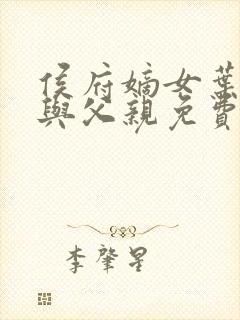 侯府嫡女葉
與父親免費
李肇星